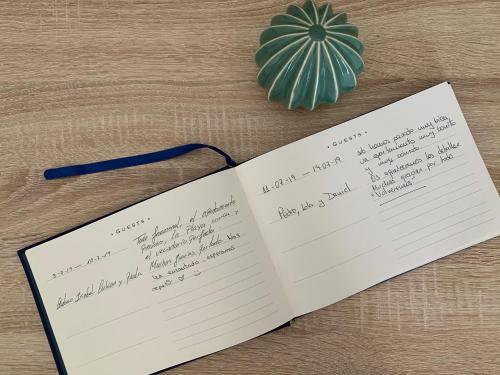 · GUESTS ·
Todo fenomenal, el apartamento
precioso, la Playa cerca y
el vecindario perfecto.
Muchas gracias por todo. Nos
ha encantado, esperamos
repetir
y Paula
· GUESTS ·
11-07-19 — 14-07-19
Pedro, Lola y Daniel
Lo hemos pasado muy bien,
un apartamento muy bonito
y muy cómodo
Os agradecemos los detalles
Muchas gracias por todo
"Volveremos"